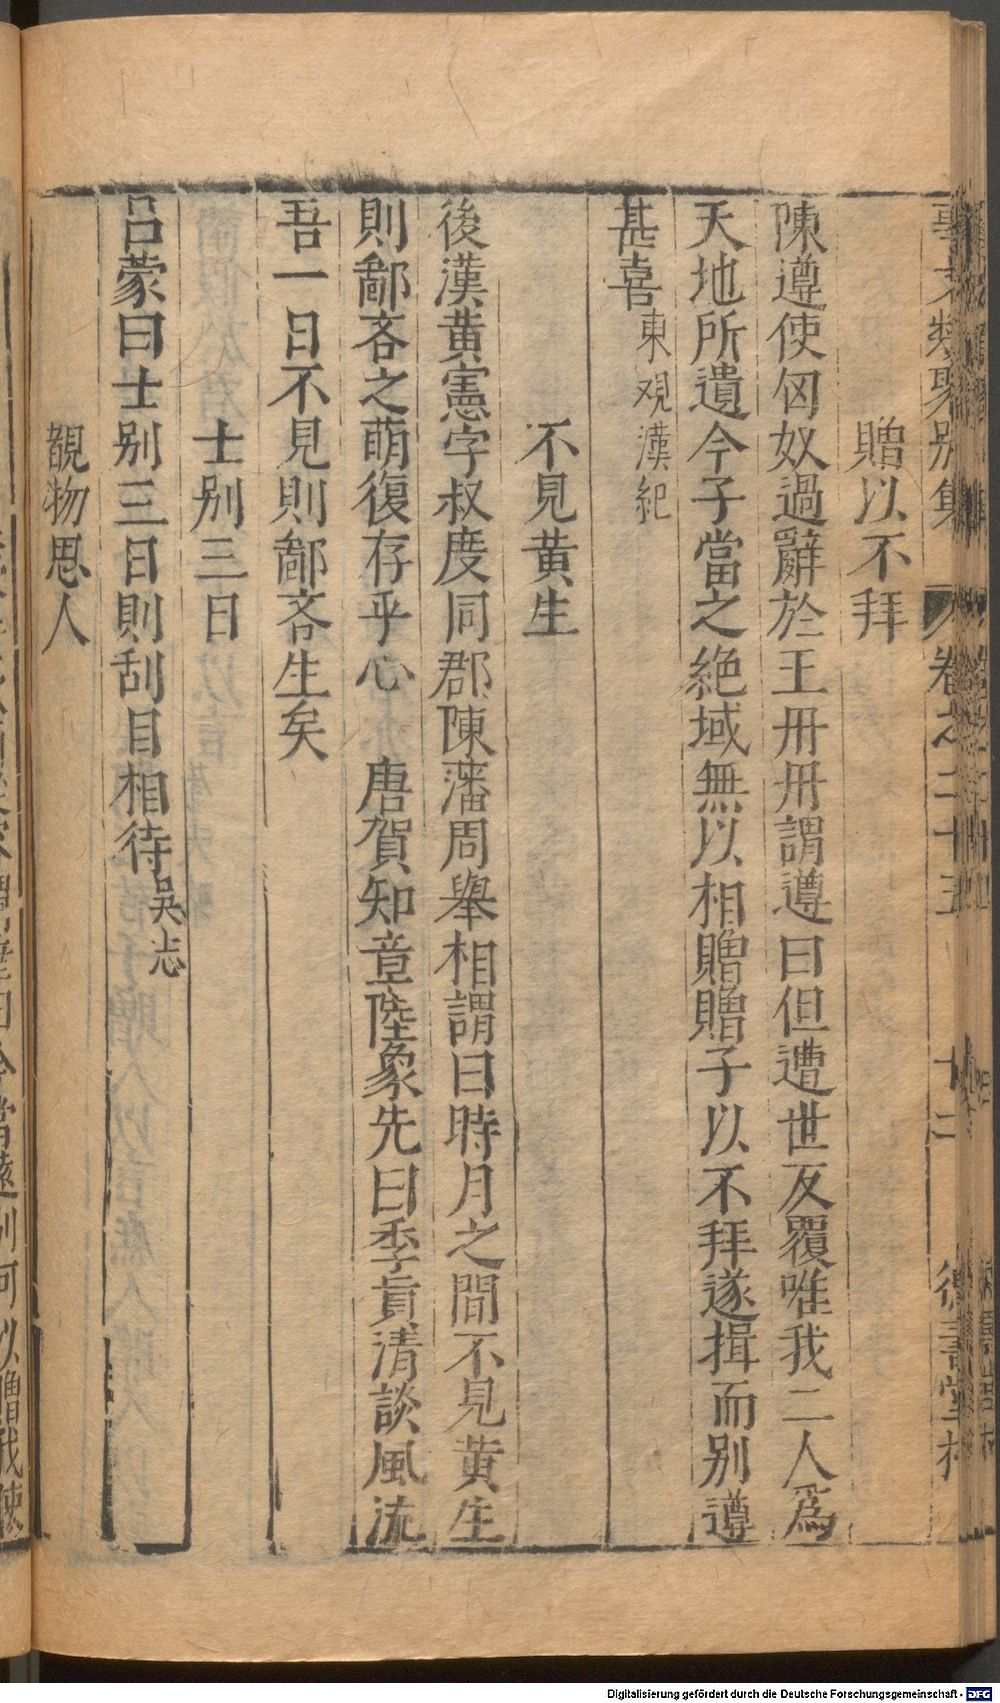 事文類聚別集 卷之二十五 十二 德壽堂梓
贈以不拜
陳遵使匈奴過辭於王丹丹謂遵曰但遭世反覆唯我二人爲
天地所遺今子當之絶域無以相贈贈子以不拜遂揖而别遵
甚喜東观漢紀
不見黄生
後漢黄憲字叔度同郡陳藩周舉相謂曰時月之間不見黄生
則鄙吝之萌復存乎心 唐賀知章陸象先曰季眞清談風流
吾一日不見則鄙吝生矣
士别三日
吕蒙曰士别三日則刮目相待吳志
覩物思人
Digitalisierung gefördert durch die Deutsche Forschungsgemeinschaft - DFG